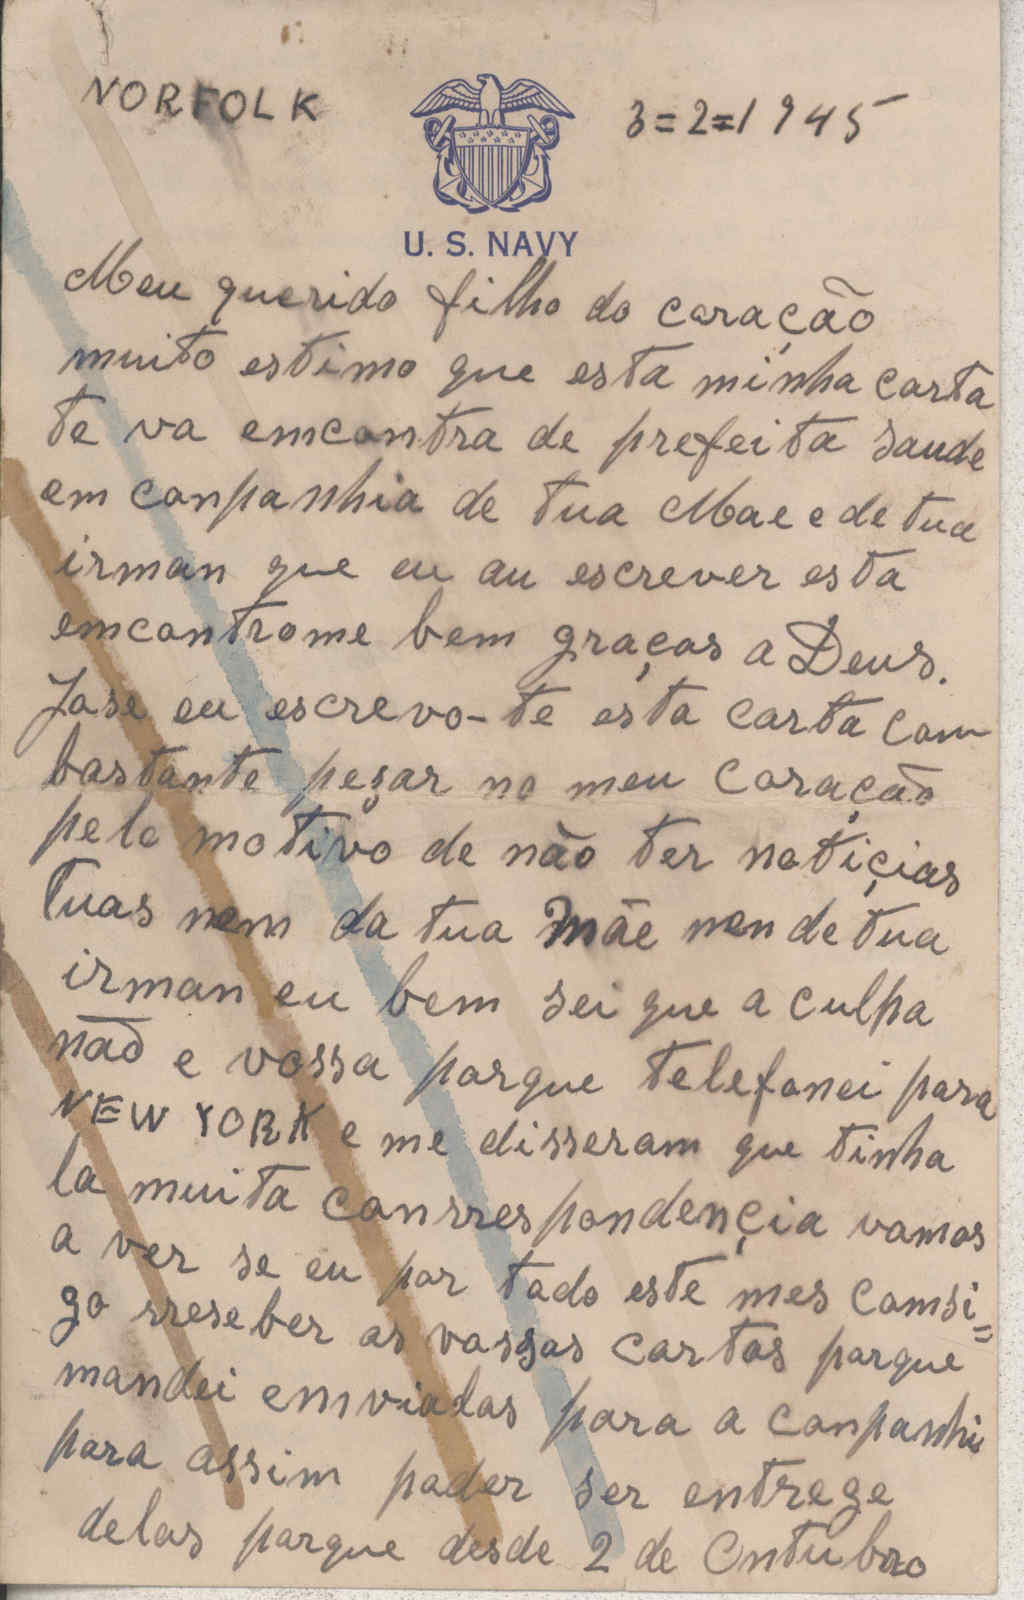 NORFOLK 3=2=1945
U. S. NAVY
Meu querido filho do coração
muito estimo que esta minha carta
te va emcontra de prefeita saude
em conpanhia de tua Mae e de tua
irman que eu au escrever esta
emcontrome bem graças a Deus.
Jose eu escrevo-te esta carta com
bastante peșar no meu coração
pelo motivo de não ter notiçias
tuas nem da tua Mãe nen de tua
irman eu bem sei que a culpa
não e vossa porque telefonei para
NEW YORK e me disseram que tinha
la muita conrrespondençia vamos
a ver se eu por todo este mes comsi=
go rreseber as vossas cartas porque
mandei emvialas para a conpanhi
para assim poder ser entrege
delas porque desde 2 de Ontubro